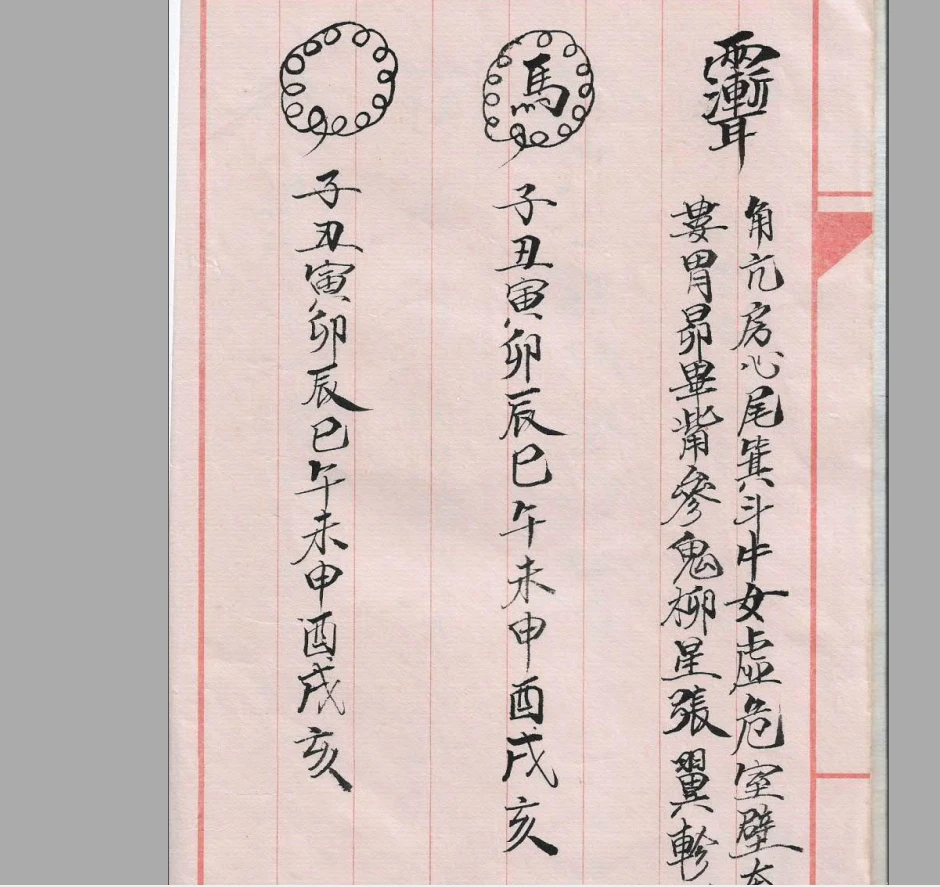 角亢房心尾箕斗牛女虛危室壁
婁胃昴畢觜參鬼柳星張翼軫
馬
子丑寅卯辰巳午未申酉戌亥
子丑寅卯辰巳午未申酉戌亥